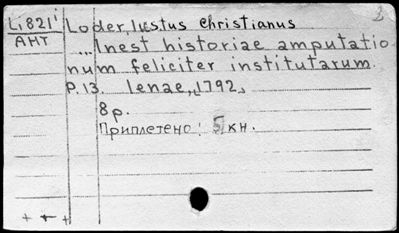 Li 821i Loder, Iustus Christianus 2
АНТ ...Inest historiae amputatio
num feliciter institutarum.
P.13. Ienae, 1792.
8 p.
Приплетено: 5 кн.
+ - +